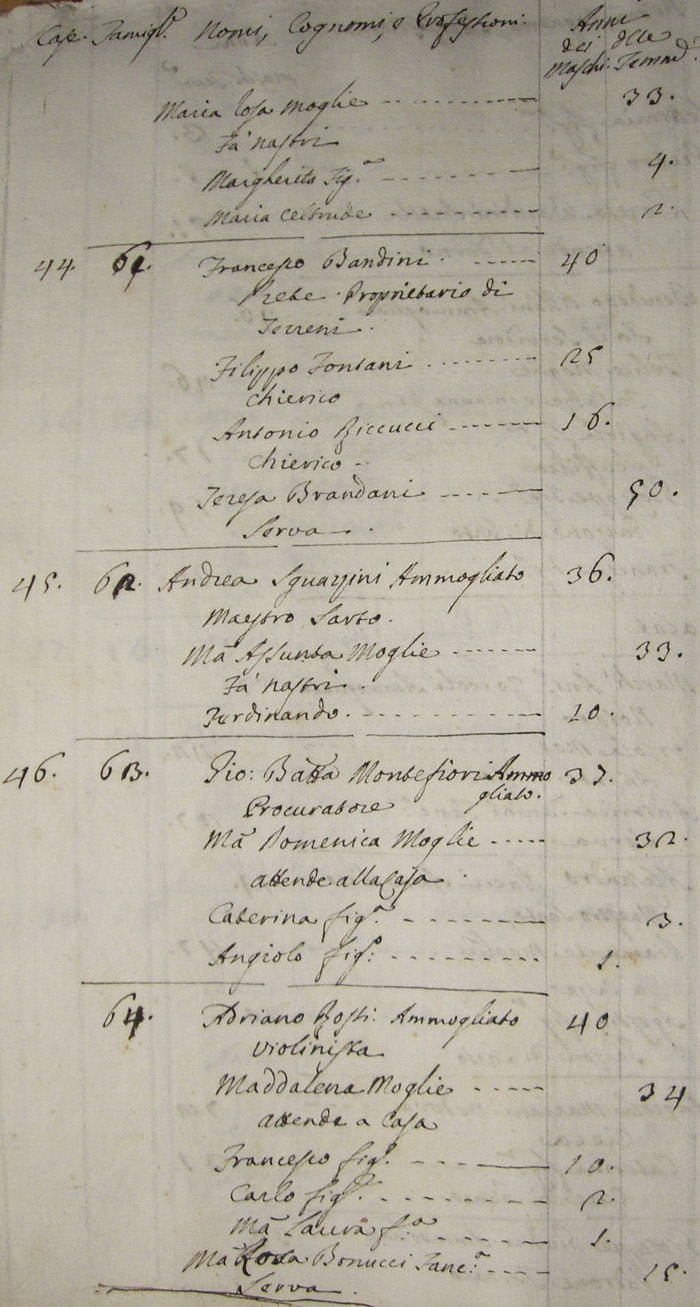 Case. Famigl.e Nomi, Cognomi, e Professioni. Anni
dei Maschi. delle Femme.
Maria Rosa Moglie 33.
Fà nastri
Margherita Fig.a 4.
Maria Geltrude 2.
44. 61. Francesco Bandini. 40
Prete. Proprietario di
Terreni.
Filippo Fontani 25
Chierico
Antonio Riccucci 16.
Chierico
Teresa Brandani 50.
Serva.
45. 62. Andrea Sguazzini Ammogliato 36.
Maestro Sarto.
Ma Assunta Moglie 33.
Fà nastri.
Ferdinando. 10.
46. 63. Gio: Batta Montefiori Ammo 37.
gliato.
Procuratore
Ma Domenica Moglie 32.
attende alla Casa.
Caterina fig.a 3.
Angiolo fig.o 1.
64. Adriano Rosti. Ammogliato 40
Violinista
Maddalena Moglie 34
attende a Casa
Francesco fig.o 10.
Carlo fig.o 2.
Ma Laura f.a 1.
Ma Rosa Bonucci 15.
Serva.